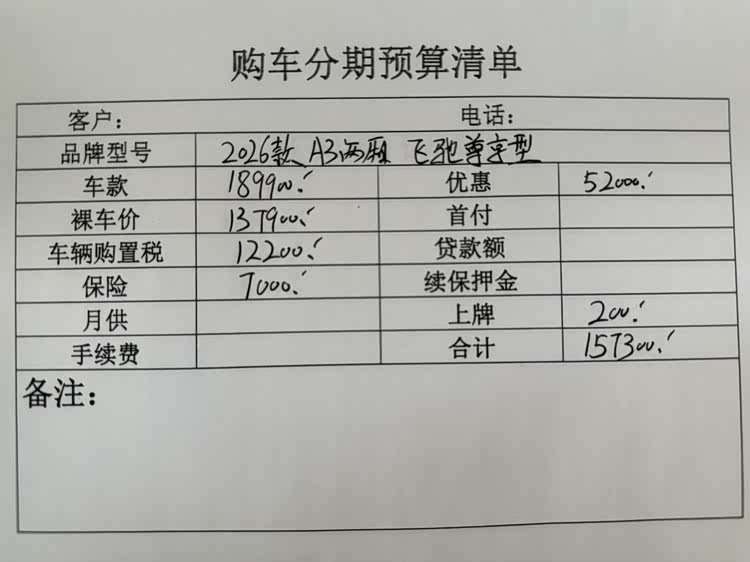 购车分期预算清单
客户： 电话：
品牌型号 2026款 A3两厢 飞驰尊享型
车款 189900.- 优惠 52000.-
裸车价 137900.- 首付
车辆购置税 12200.- 贷款额
保险 7000.- 续保押金
月供 上牌 200.-
手续费 合计 157300.-
备注：